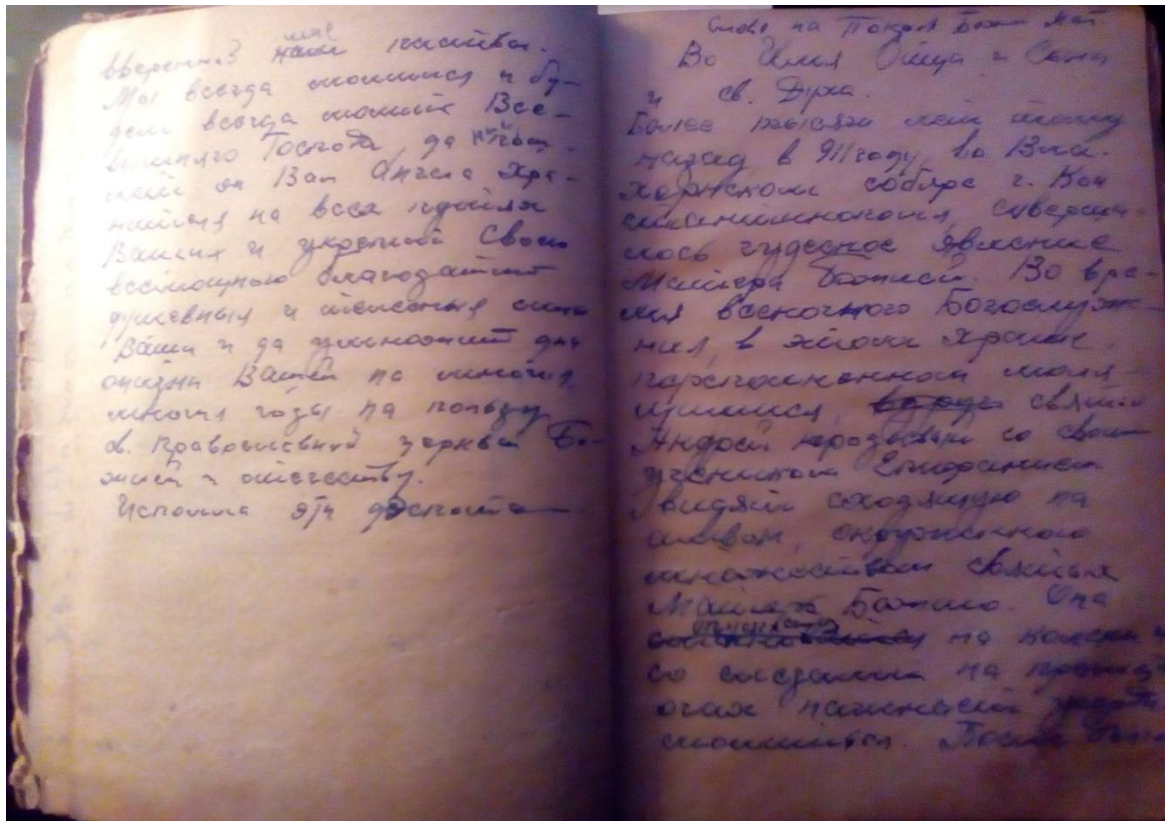 вверенной мне паствы.
Мы всегда молимся и бу-
дем всегда молить Все-
вышняго Господа, да
он Вам Ангела Хра-
нителя на всех путях
Ваших и укрепит Своею
всемощною благодатию
душевныя и телесныя силы
Ваши и да умножит дни
жизни Вашей на многия,
многия годы на пользу
св. православной церкви Бо-
жией и отечеству.
Исполла эти деспота
Слово на Покров Божией Мат
Во Имя Отца и Сына
и св. Духа.
Более тысячи лет тому
назад в 911 году, во Вла-
хернском соборе г. Кон
стантинополя, соверши-
лось чудесное явление
Матери Божией. Во вре-
мя всеночного Богослуже-
ния, в этом храме,
переполненном моля-
щимися, вдруг святой
Андрей юродивый со своим
учеником Епифанием
видят сходящую на
амвон, окруженною
множеством святых
Матерь Божию. Она
на колени и
со слезами на
очах начинает
молиться. После